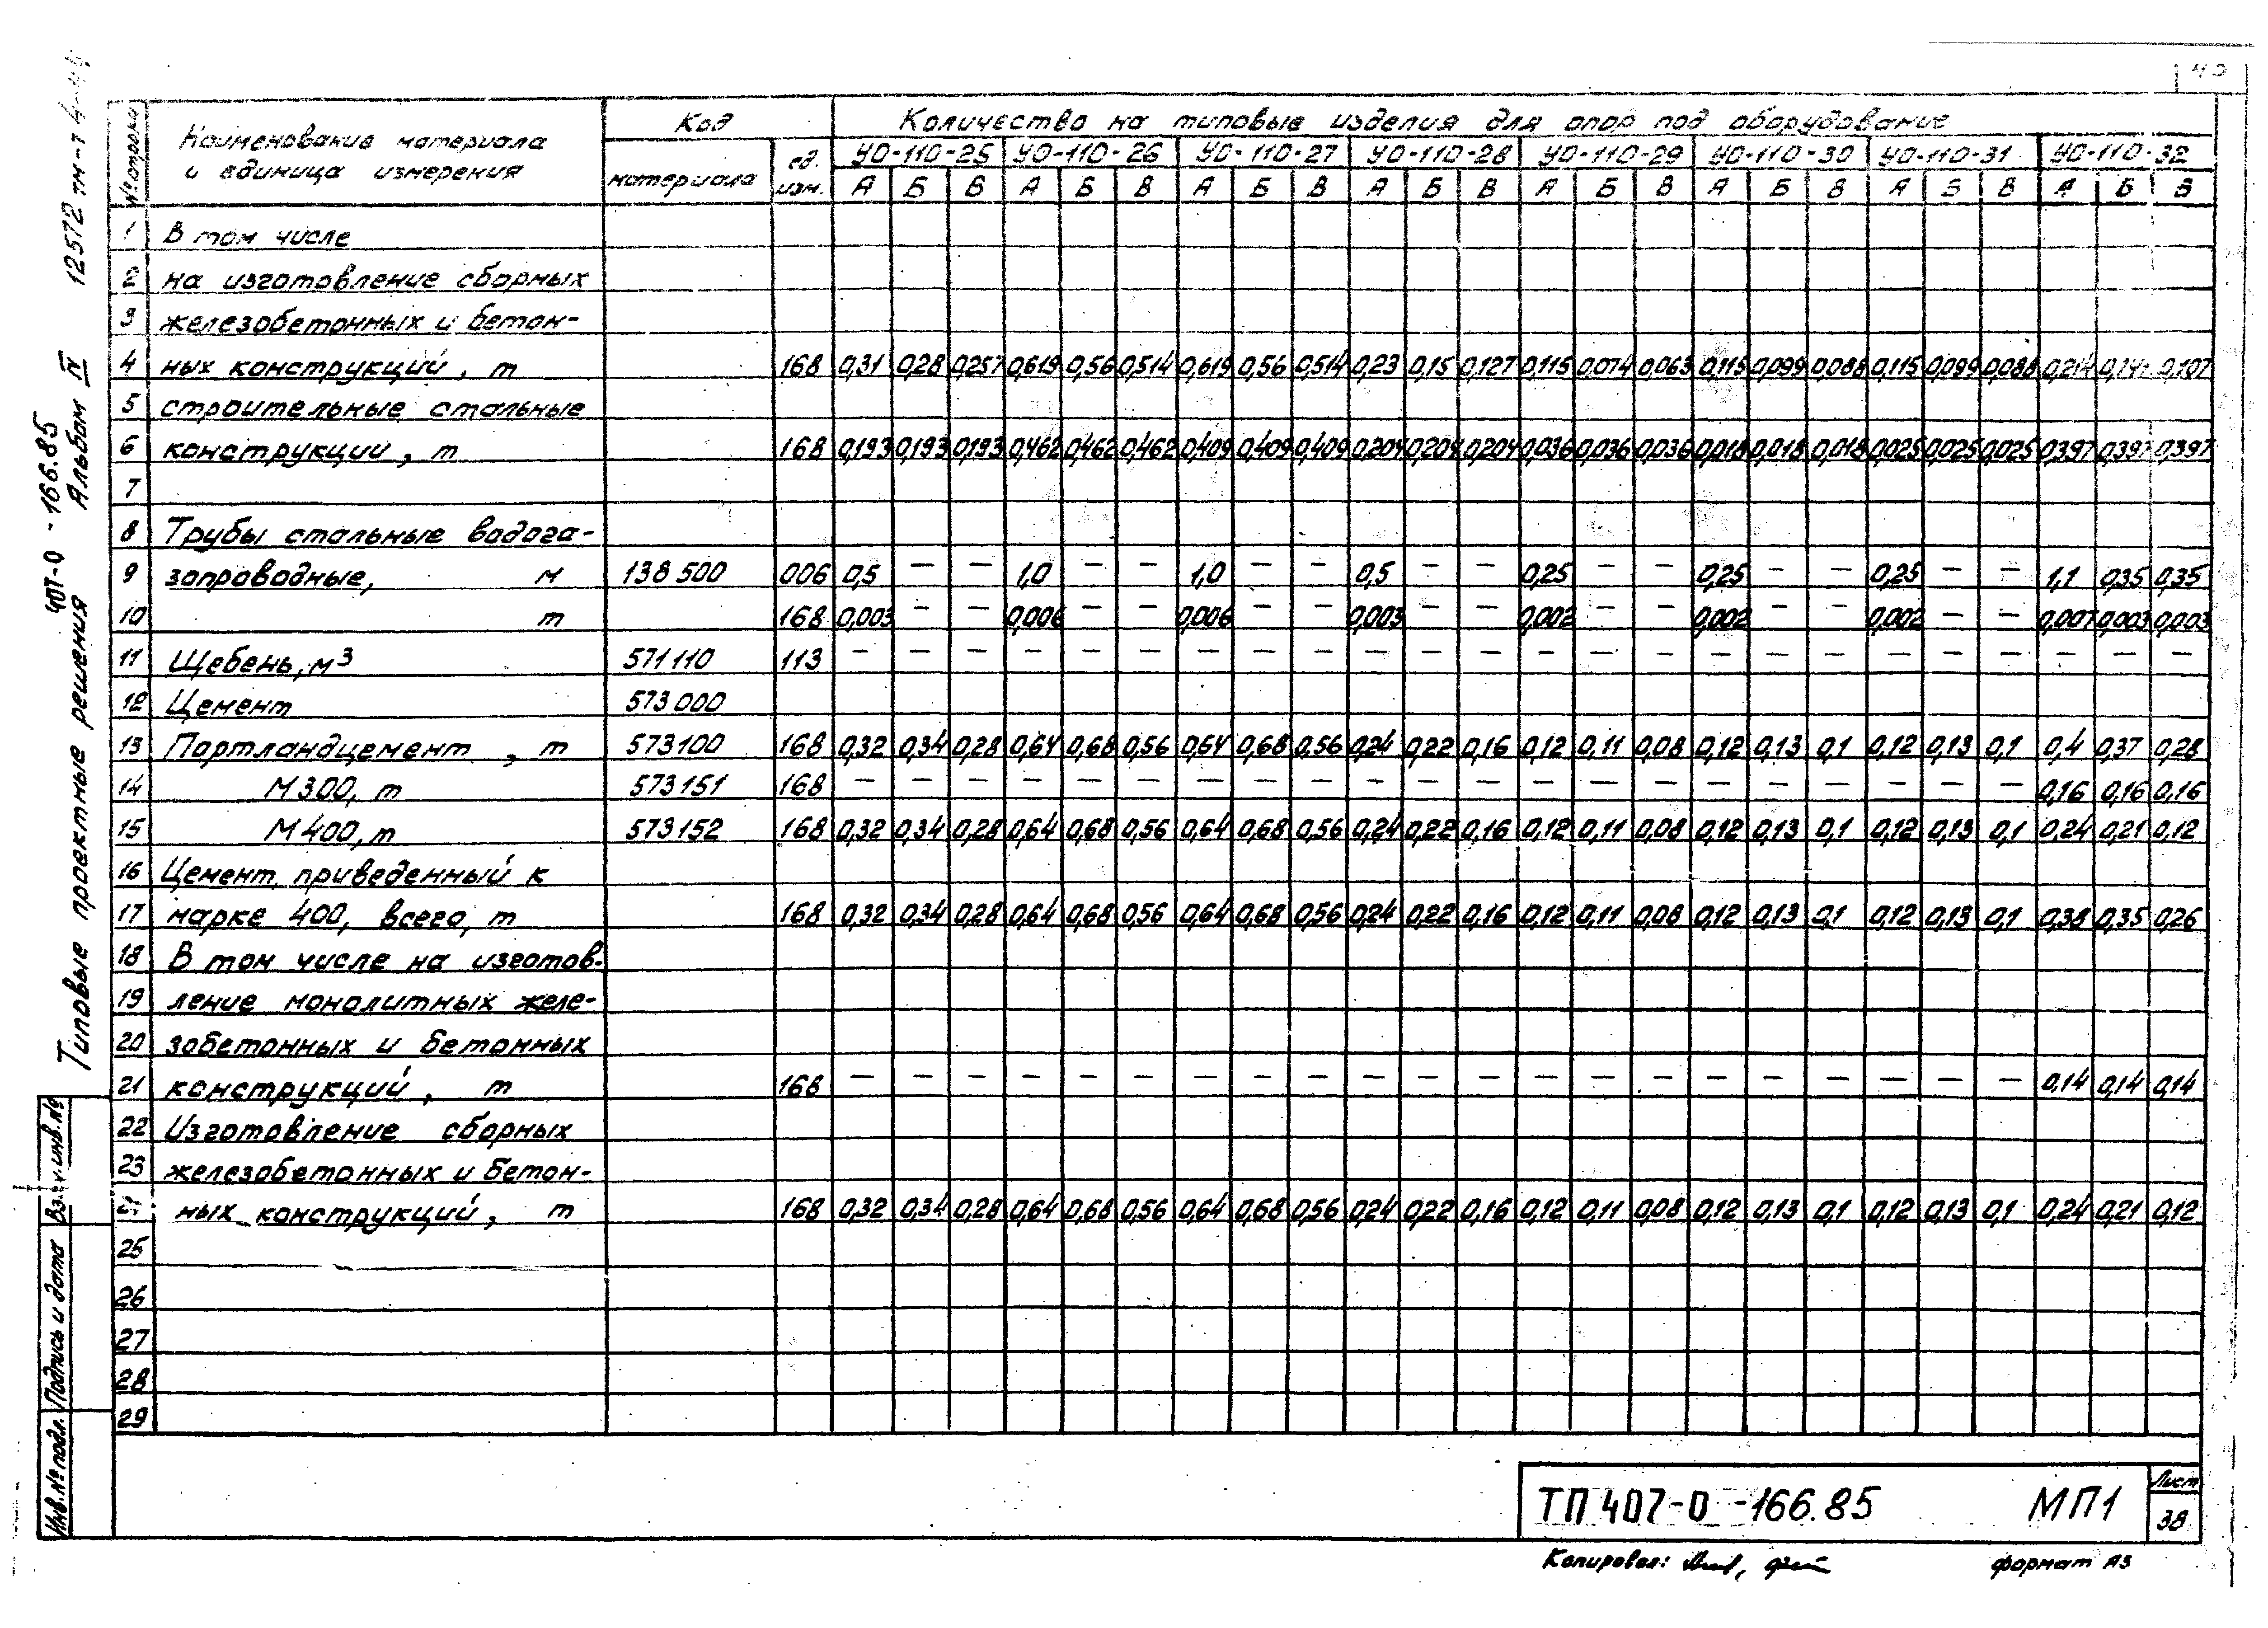 40
№ строки
Наименование материала и единица измерения
Код
материала
ед. изм.
Количество на типовые изделия для опор под оборудование
УО-110-25 УО-110-26 УО-110-27 УО-110-28 УО-110-29 УО-110-30 УО-110-31 УО-110-32
А Б В А Б В А Б В А Б В А Б В А Б В А Б В А Б В
1 В том числе
2 на изготовление сборных
3 железобетонных и бетон-
4 ных конструкций, т 168 0,31 0,28 0,257 0,619 0,56 0,514 0,619 0,56 0,514 0,23 0,15 0,127 0,115 0,074 0,063 0,115 0,099 0,088 0,115 0,099 0,088 0,214 0,141 0,107
5 строительные стальные
6 конструкции, т 168 0,193 0,193 0,193 0,462 0,462 0,462 0,409 0,409 0,409 0,204 0,204 0,204 0,036 0,036 0,036 0,018 0,018 0,018 0,025 0,025 0,025 0,397 0,397 0,397
7
8 Трубы стальные водога-
9 зопроводные, м 138500 006 0,5 — — 1,0 — — 1,0 — — 0,5 — — 0,25 — — 0,25 — — 0,25 — — 1,1 0,35 0,35
10 т 168 0,003 — — 0,006 — — 0,006 — — 0,003 — — 0,002 — — 0,002 — — 0,002 — — 0,007 0,003 0,003
11 Щебень, м3 571110 113 — — — — — — — — — — — — — — — — — — — — — — — —
12 Цемент 573000
13 Портландцемент, т 573100 168 0,32 0,34 0,28 0,64 0,68 0,56 0,64 0,68 0,56 0,24 0,22 0,16 0,12 0,11 0,08 0,12 0,13 0,1 0,12 0,13 0,1 0,4 0,37 0,28
14 М300, т 573151 168 — — — — — — — — — — — — — — — — — — — — — 0,16 0,16 0,16
15 М400, т 573152 168 0,32 0,34 0,28 0,64 0,68 0,56 0,64 0,68 0,56 0,24 0,22 0,16 0,12 0,11 0,08 0,12 0,13 0,1 0,12 0,13 0,1 0,24 0,21 0,12
16 Цемент, приведенный к
17 марке 400, всего, т 168 0,32 0,34 0,28 0,64 0,68 0,56 0,64 0,68 0,56 0,24 0,22 0,16 0,12 0,11 0,08 0,12 0,13 0,1 0,12 0,13 0,1 0,38 0,35 0,26
18 В том числе на изготов-
19 ление монолитных желе-
20 зобетонных и бетонных
21 конструкций, т 168 — — — — — — — — — — — — — — — — — — — — — 0,14 0,14 0,14
22 Изготовление сборных
23 железобетонных и бетон-
24 ных конструкций, т 168 0,32 0,34 0,28 0,64 0,68 0,56 0,64 0,68 0,56 0,24 0,22 0,16 0,12 0,11 0,08 0,12 0,13 0,1 0,12 0,13 0,1 0,24 0,21 0,12
25
26
27
28
29
Типовые проектные решения 407-0-166.85 Альбом IV 12572 тм-т4-44
Взам.инв.№
Подпись и дата
Инв.№ подл.
ТП 407-0-166.85 МП1
Лист
38
Копировал:
формат А3